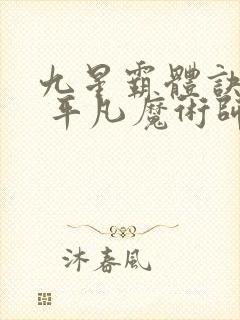 九星霸體訣
平凡魔術師
沐春風